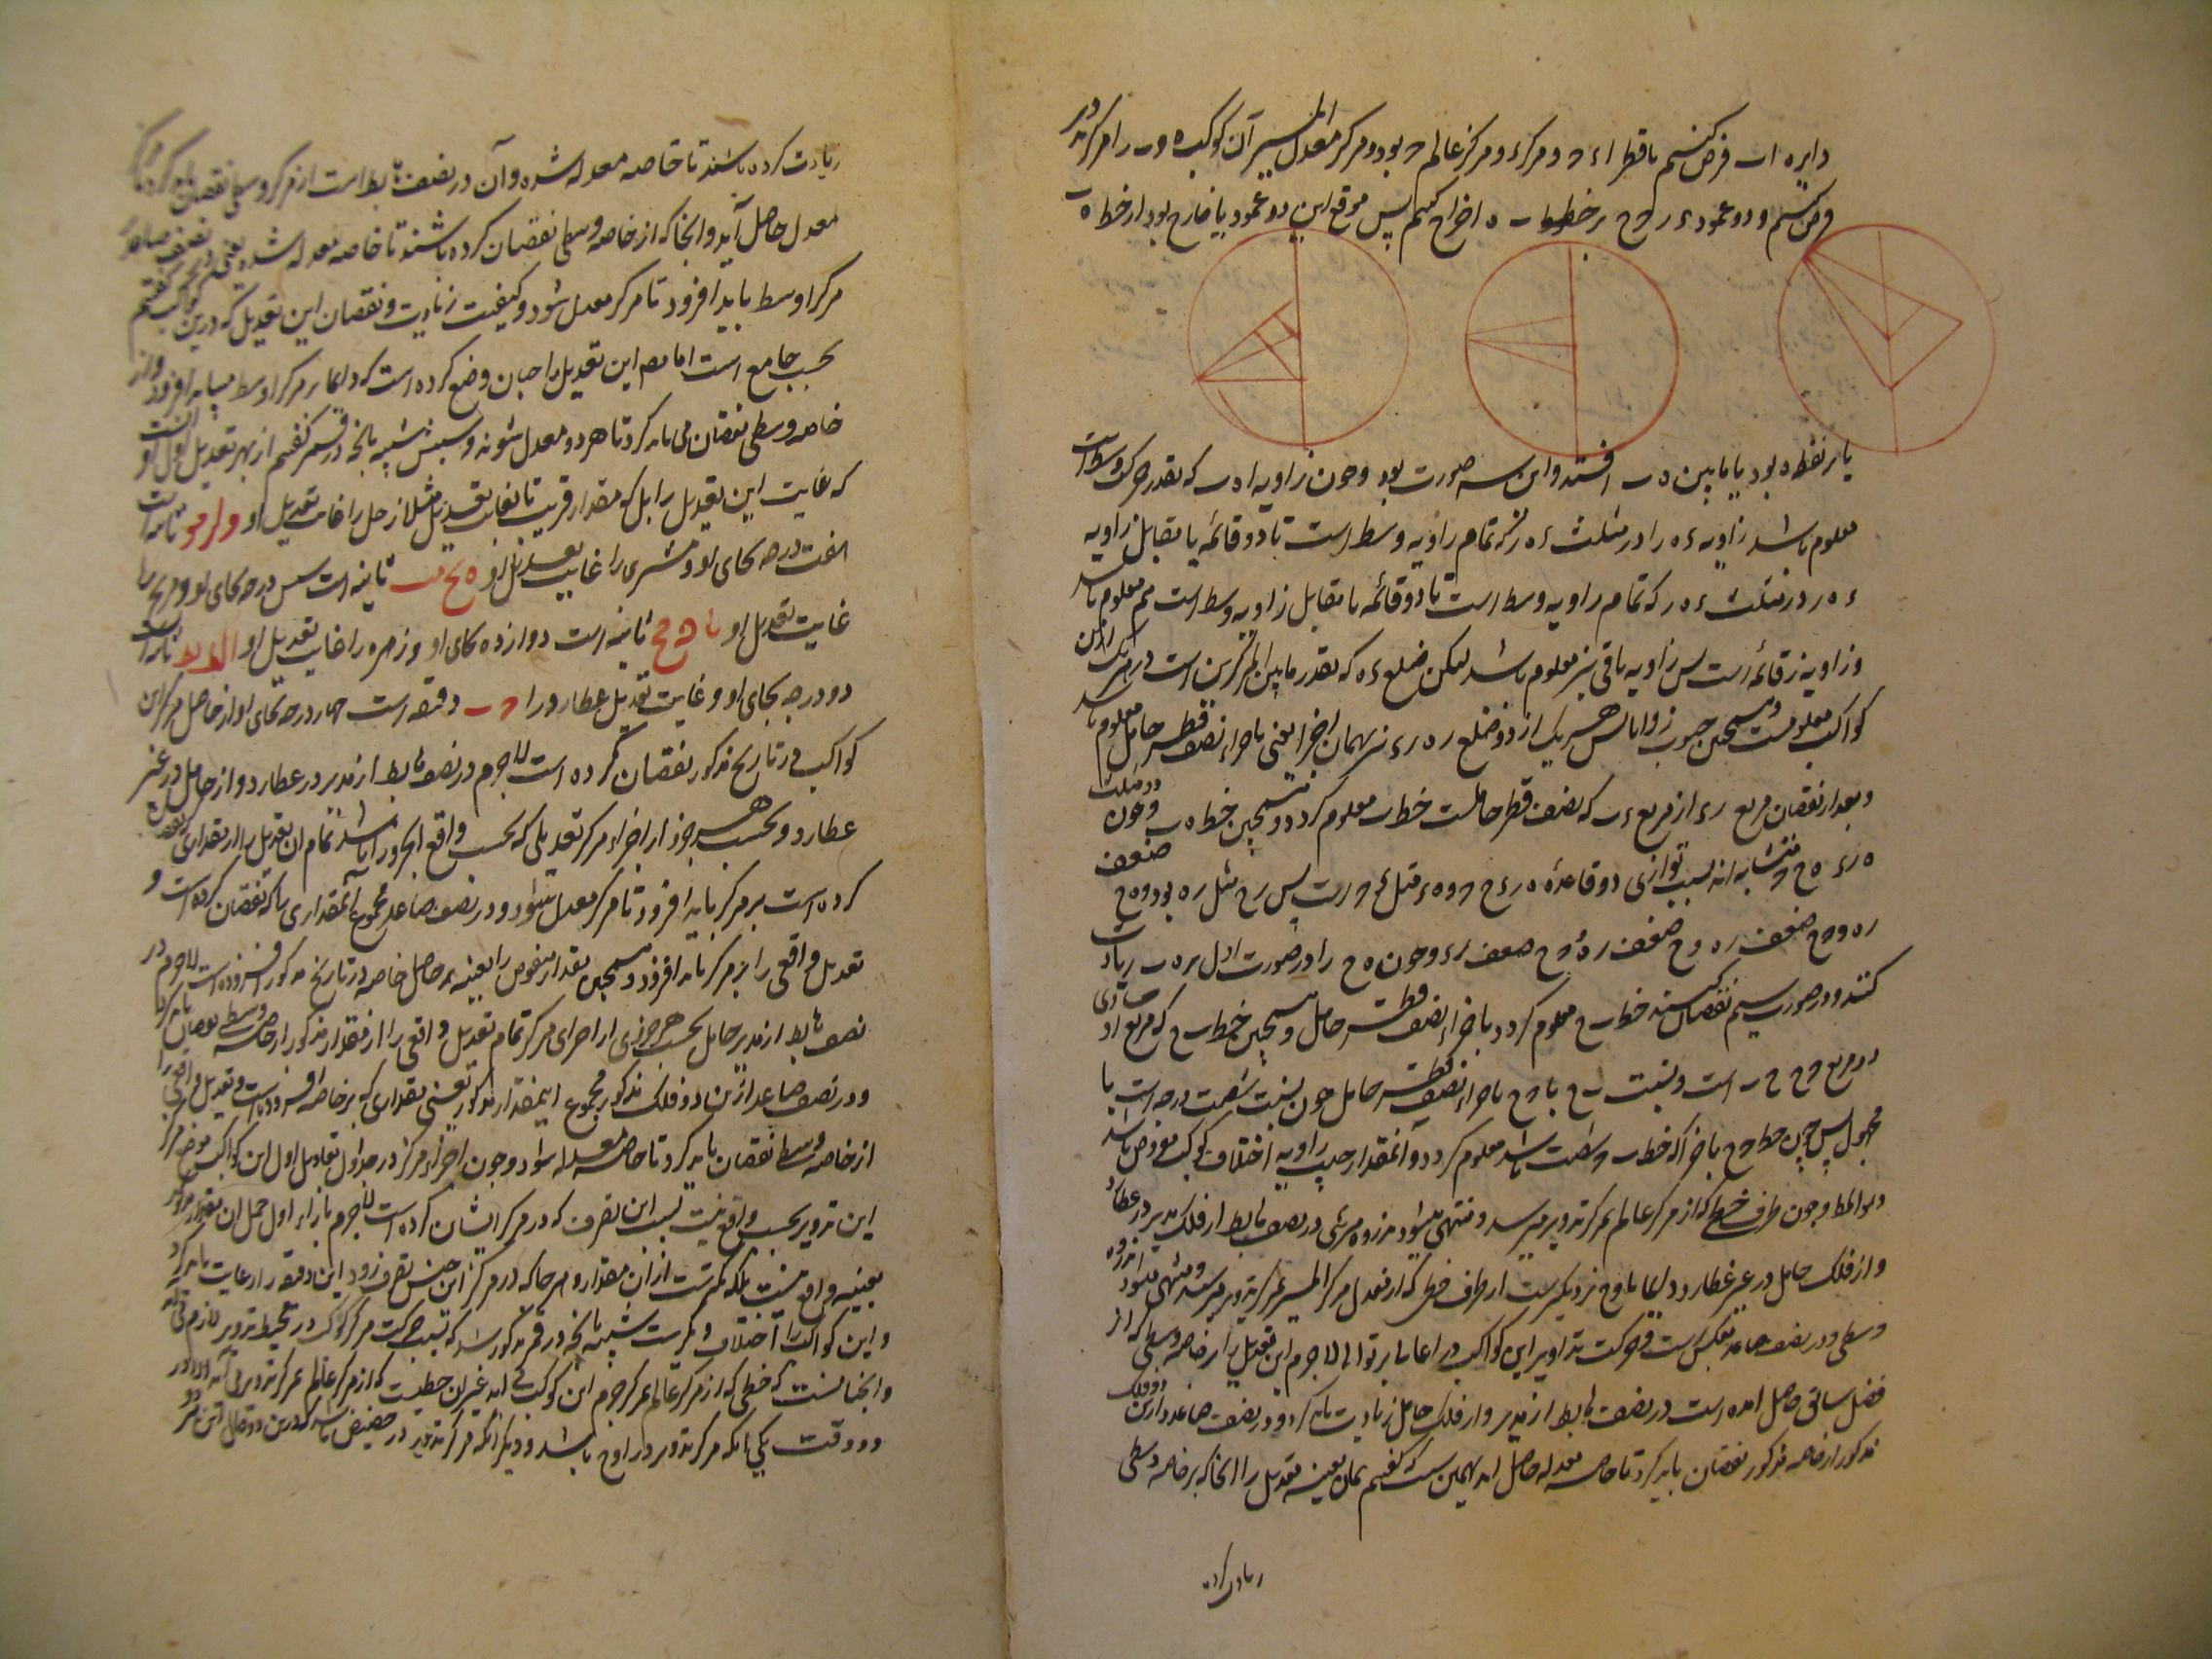 دایره اب فرض کنیم با قطر اء و مرکز ء و مرکز عالم ح بود و مرکز معدل المسیر آن کوکب ه و ب را مرکز تدویر
فرض کنیم و دو عمود ء ر ح ح بر خط ب ه اخراج کنیم پس موقع این دو عمود یا خارج بود از خط ه ب
یا بر نقطه ه بود یا مابین ه ب افتد و این سه صورت بود و چون زاویه ا ه ب که بقدر حرکت وسط است
معلوم باشد زاویه ء ه ر را در مثلث ء ه ر که تمام زاویه وسط است تا دو قائمه یا مقابل زاویه
ء ه ر در مثلث ء ه ر که تمام زاویه وسط است تا دو قائمه یا مقابل زاویه وسط است هم معلوم باشد
و زاویه ر قائمه است پس زاویه باقی نیز معلوم باشد لیکن ضلع ء ه که بقدر مابین المرکزین است در هر یک ازین
کواکب معلومست و همچنین جیوب زوایا پس هر یک از دو ضلع ر ه ر ء نیز بهمان اجزا یعنی باجزاء نصف قطر حامل معلوم باشد
و بعد از نقصان مربع ر ء از مربع ء ب که نصف قطر حاملست خط ر ب معلوم گردد و همچنین خط ه ب و چون دو مثلث
ه ر ء ه ح ح متشابه اند بسبب توازی دو قاعده ر ء ح ح و ه ء مثل ء ح است پس ر ح مثل ر ه بود و ه ح ضعف
ر ه و ح ح ضعف ر ء و چون ه ح را در صورت اول بر ه ب زیادت
کنند و در صورت سیم نقصان کنند خط ب ح معلوم گردد باجزاء نصف قطر حامل و همچنین خط ب ح که مربع او مساوی
دو مربع ح ح ح ب است و نسبت ب ح با ح ح باجزاء نصف قطر حامل چون نسبت شصت درجه است با
مجهول پس چون خط ح ح باجزا که خط ب ح شصت باشد معلوم گردد و آنمقدار جیب زاویه اختلاف کوکب مفروض باشد
و هو المطلوب و چون طرف خطی که از مرکز عالم بمرکز تدویر میرسد و منتهی میشود بذروه مرئی در نصف هابط از فلک مدیر در عطارد
و از فلک حامل در غیر عطارد دایما باوج نزدیکترست از طرف خطی که از معدل مرکز المسیر بمرکز تدویر میرسد و منتهی میشود بذروه
وسطی و در نصف صاعد بعکس است و حرکت تداویر این کواکب در اعالی بر توالی لاجرم این تعدیل را بر خاصه وسطی که از
فضل سابق حاصل آمده است در نصف هابط از مدیر و از فلک حامل زیادت باید کرد و در نصف صاعد ازین دو فلک
مذکور از خاصه مذکور نقصان باید کرد تا خاصه معدله حاصل آید بهمین سبب که گفتیم همان بعینه تعدیل را آنجا که بر خاصه وسطی
زیادت کرده
زیادت کرده باشند تا خاصه معدله شده و آن در نصف هابط است از مرکز وسطی نقصان باید کرد تا مرکز
معدل حاصل آید و آنجا که از خاصه وسطی نقصان کرده باشند تا خاصه معدله شده یعنی در نصف صاعد بر
مرکز اوسط باید افزود تا مرکز معدل شود و کیفیت زیادت و نقصان این تعدیل که درین کواکب گفتیم
بحسب جامع است اما مص این تعدیل را چنان وضع کرده است که دایما بر مرکز اوسط میباید افزود و از
خاصه وسطی نقصان می باید کرد تا هر دو معدل شوند و سببش شبیه بآنچه در قمر گفتیم از بهر تعدیل اول او آنست
که غایت این تعدیل را بل که مقدار قریب تا بغایت تعدیل مثلا زحل را غایت تعدیل او و لر مو ثانیه است
هفت درجه بجای او و مشتری را غایت تعدیل او ه یح ثانیه است شش درجه بجای او و مریخ را
غایت تعدیل او یا ه مح ثانیه است دوازده بجای او و زهره را غایت تعدیل او ا ثانیه است
دو درجه بجای او و غایت تعدیل عطارد را ح ب دقیقه است چهار درجه بجای او از حاصل مرکز این
کواکب در تاریخ مذکور نقصان کرده است لاجرم در نصف هابط از مدیر در عطارد و از حامل در غیر
عطارد و بحسب هر جزو از اجزاء مرکز تعدیلی که بحسب واقع آنجزو را باشد تمام آن تعدیل را از مقداری که نقصان
کرده است بر مرکز باید افزود تا مرکز معدل شود و در نصف صاعد مجموع آنمقداری را که نقصان کرده است و
تعدیل واقعی را بر مرکز باید افزود و همچنین بقدر منقوص را بعینه بر حاصل خاصه در تاریخ مذکور افزوده است لاجرم در
نصف هابط از مدیر حامل بحسب هر جزوی از اجزای مرکز تمام تعدیل واقعی را از مقدار مذکور از خاصه وسطی نقصان باید کرد
و در نصف صاعد ازین دو فلک مذکور مجموع اینمقدار مذکور یعنی مقداری که بر خاصه افزوده است و تعدیل واقعی را
از خاصه وسطی نقصان باید کرد تا خاصه معدله شود و چون اجزاء مرکز در جداول تعادیل اول این کواکب موضع مرکز
این تدویر بحسب واقع نیست بسبب این تصرف که در مرکز ایشان کرده است لاجرم بازاء اول حمل آن مقدار مذکور
بعینه واقع نیست بلکه کمترست از آن مقدار و هر جا که در مرکز این جنس تصرف رود این دقیقه را رعایت باید کرد
و این کواکب را اختلاف دیگرست شبیه بآنچه در قمر مذکور شد که بسبب حرکت مرکز کوکب در محیط تدویر لازم می آید
و آنچنانست که خطی که از مرکز عالم بمرکز جرم این کوکب آید غیر آن خطیست که از مرکز عالم بمرکز تدویر می آید الا در
دو وقت یکی آنکه مرکز تدویر در اوج باشد و دیگر آنکه مرکز تدویر در حضیض باشد که درین دو حال این هر دو